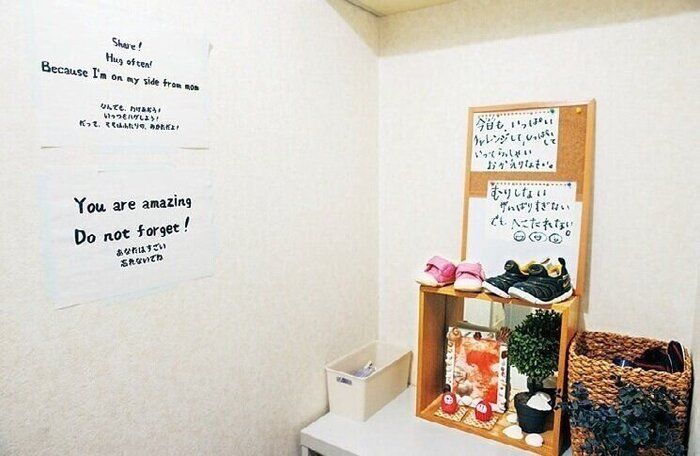 Share!
Hug often!
Because I'm on my side from mom
なんでも、わけあおう!
いっつもハグしよう!
だって、ママはふたりの、みかただよ!
You are amazing
Do not forget!
あなたはすごい
忘れないでね
今日も、いっぱい
チャレンジして、しっぱいして
いってらっしゃい
おかえりなさい。
むりしない
がんばりすぎない
でも へこたれない。